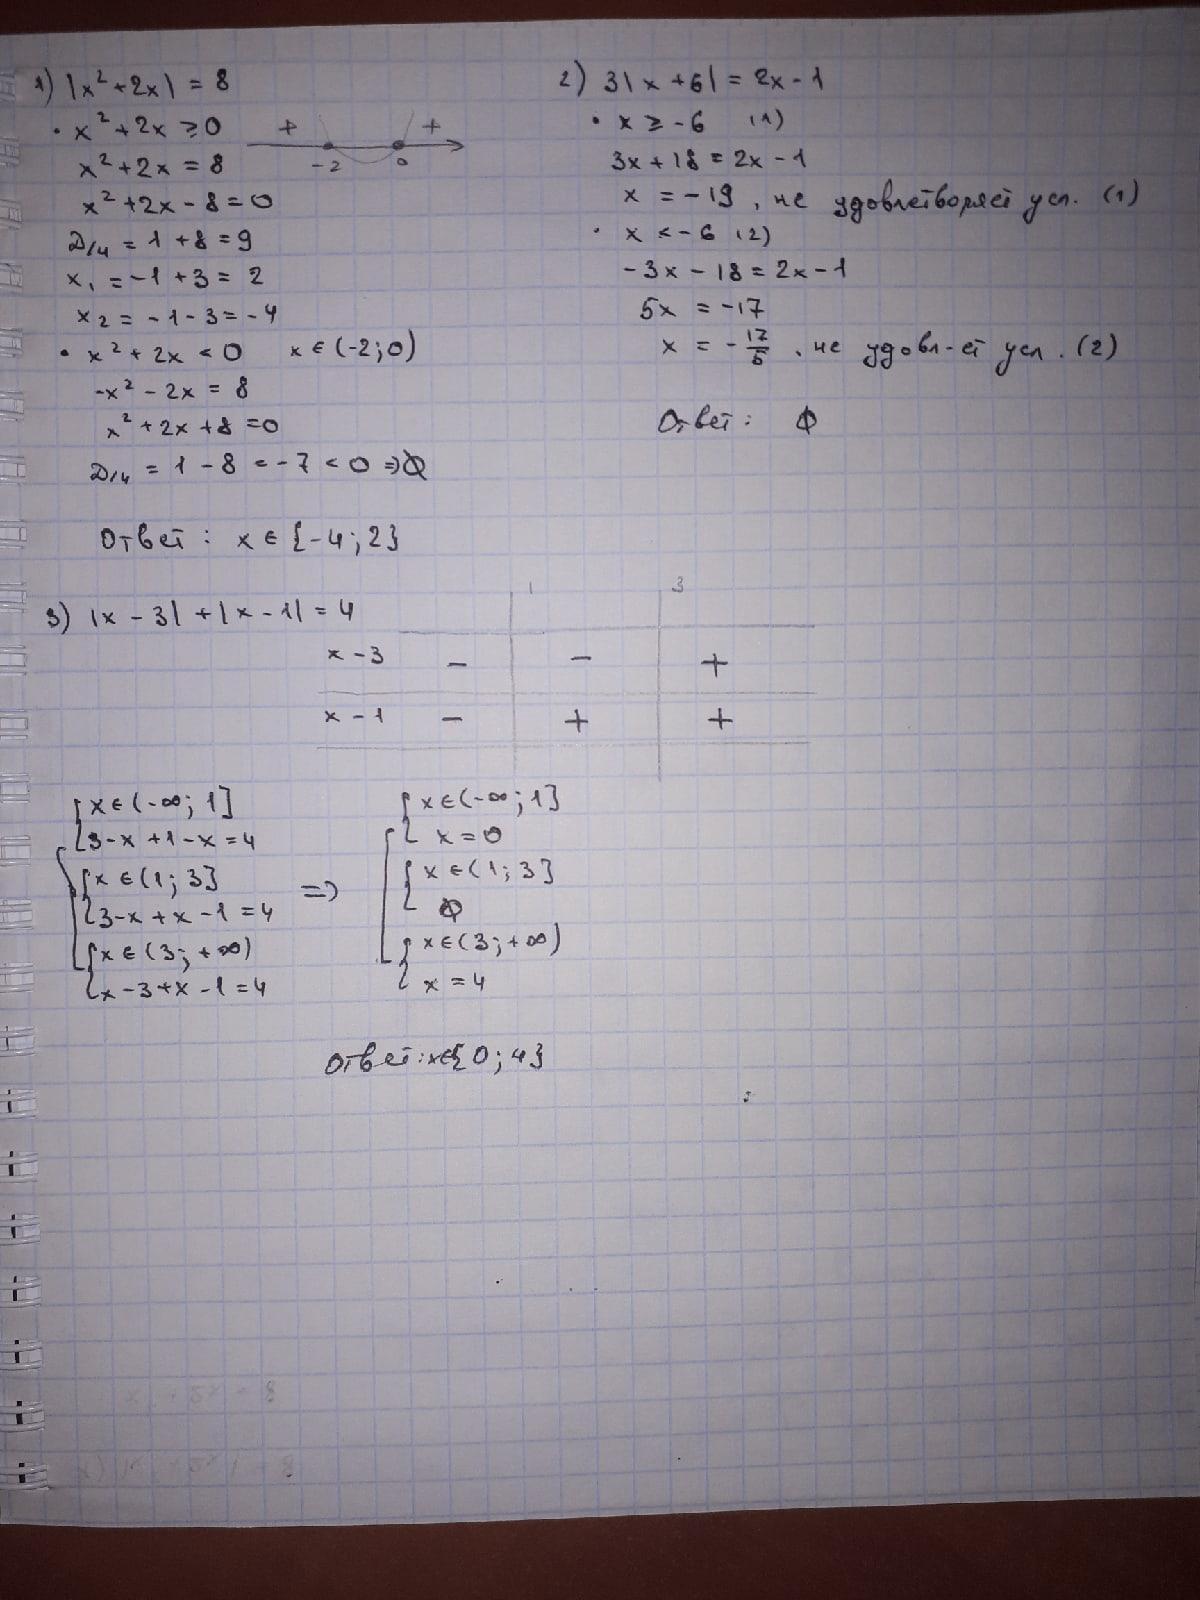 1) |x² + 2x| = 8
• x² + 2x ≥ 0
+ +
-2 0
x² + 2x = 8
x² + 2x - 8 = 0
D/4 = 1 + 8 = 9
x₁ = -1 + 3 = 2
x₂ = -1 - 3 = -4
• x² + 2x < 0 x ∈ (-2; 0)
-x² - 2x = 8
x² + 2x + 8 = 0
D/4 = 1 - 8 = -7 < 0 => ∅
Ответ: x ∈ {-4; 2}
2) 3|x + 6| = 2x - 1
• x ≥ -6 (1)
3x + 18 = 2x - 1
x = -19, не удовлетворяет усл. (1)
• x < -6 (2)
-3x - 18 = 2x - 1
5x = -17
x = -17/5, не удовл-ет усл. (2)
Ответ: ∅
3) |x - 3| + |x - 1| = 4
1 3
x - 3 - - +
x - 1 - + +
x ∈ (-∞; 1]
3 - x + 1 - x = 4
x ∈ (1; 3]
3 - x + x - 1 = 4
x ∈ (3; +∞)
x - 3 + x - 1 = 4
=>
x ∈ (-∞; 1]
x = 0
x ∈ (1; 3]
∅
x ∈ (3; +∞)
x = 4
Ответ: x ∈ {0; 4}